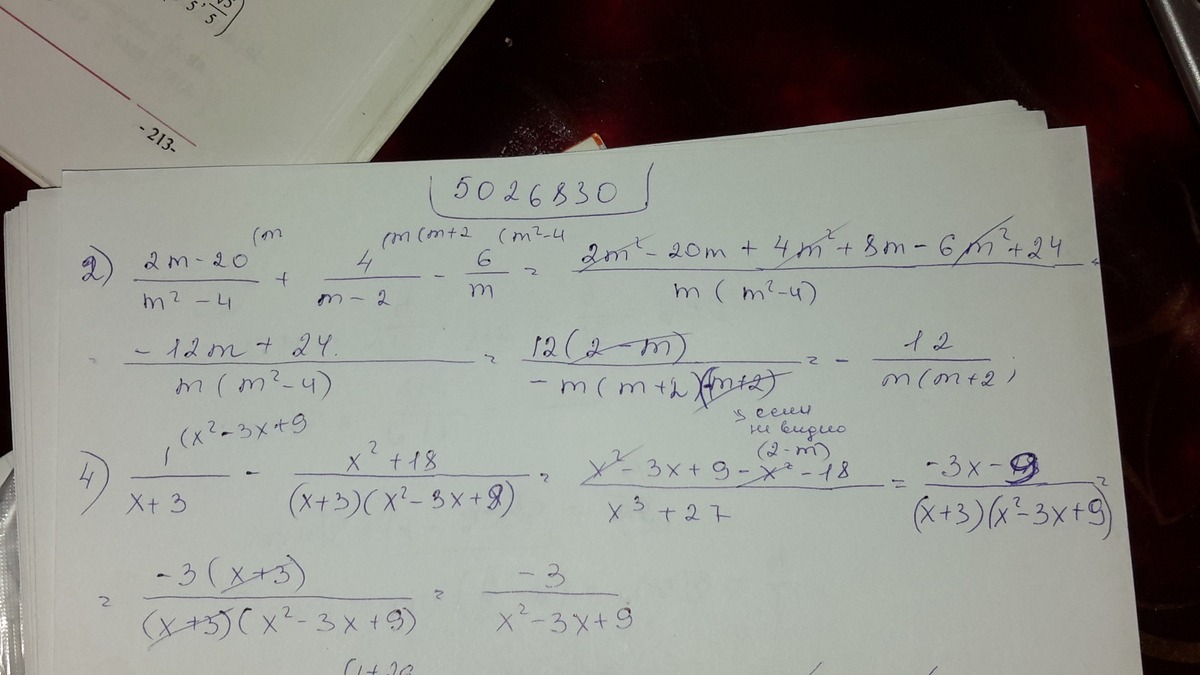 - 213-
5026830
2) (2m-20)/(m²-4) (m + 4/(m-2) (m(m+2 - 6/m (m²-4 = (2m²-20m+4m²+8m-6m²+24)/(m(m²-4)) =
= (-12m+24)/(m(m²-4)) = (12(2-m))/(-m(m+2)(-m+2)) = - 12/(m(m+2);
↳ если
не видно
(2-m)
4) 1/(x+3) (x²-3x+9 - (x²+18)/((x+3)(x²-3x+9)) = (x²-3x+9-x²-18)/(x³+27) = (-3x-9)/((x+3)(x²-3x+9)) =
= (-3(x+3))/((x+3)(x²-3x+9)) = (-3)/(x²-3x+9)